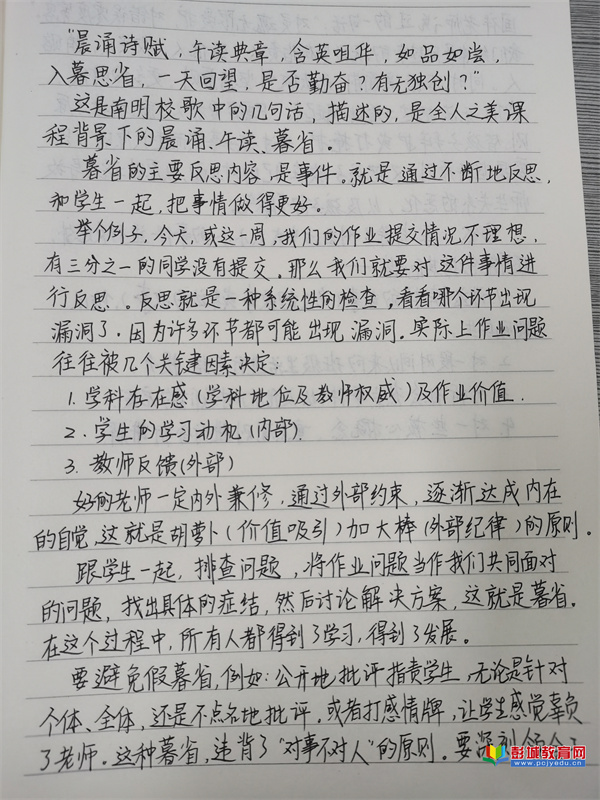 “晨诵诗赋，午读典章，含英咀华，如品如尝，
入暮思省，一天回望，是否勤奋？有无独创？”
这是南明校歌中的几句话，描述的，是全人之美课
程背景下的晨诵、午读、暮省。
暮省的主要反思内容，是事件。就是通过不断地反思，
和学生一起，把事情做得更好。
举个例子，今天，或这一周，我们的作业提交情况不理想，
有三分之一的同学没有提交。那么我们就要对这件事情进
行反思。反思就是一种系统性的检查，看看哪个环节出现
漏洞了。因为许多环节都可能出现漏洞。实际上作业问题
往往被几个关键因素决定：
1. 学科存在感（学科地位及教师权威）及作业价值.
2. 学生的学习动机（内部）.
3. 教师反馈（外部）
好的老师一定内外兼修，通过外部约束，逐渐达成内在
的自觉，这就是胡萝卜（价值吸引）加大棒（外部纪律）的原则。
跟学生一起，排查问题，将作业问题当作我们共同面对
的问题，找出具体的症结，然后讨论解决方案，这就是暮省。
在这个过程中，所有人都得到了学习，得到了发展。
要避免假暮省，例如：公开地批评指责学生，无论是针对
个体、全体，还是不点名地批评，或者打感情牌，让学生感觉辜负
了老师。这种暮省，违背了“对事不对人”的原则。要深刻
彭城教育网
www.pcjyedu.cn